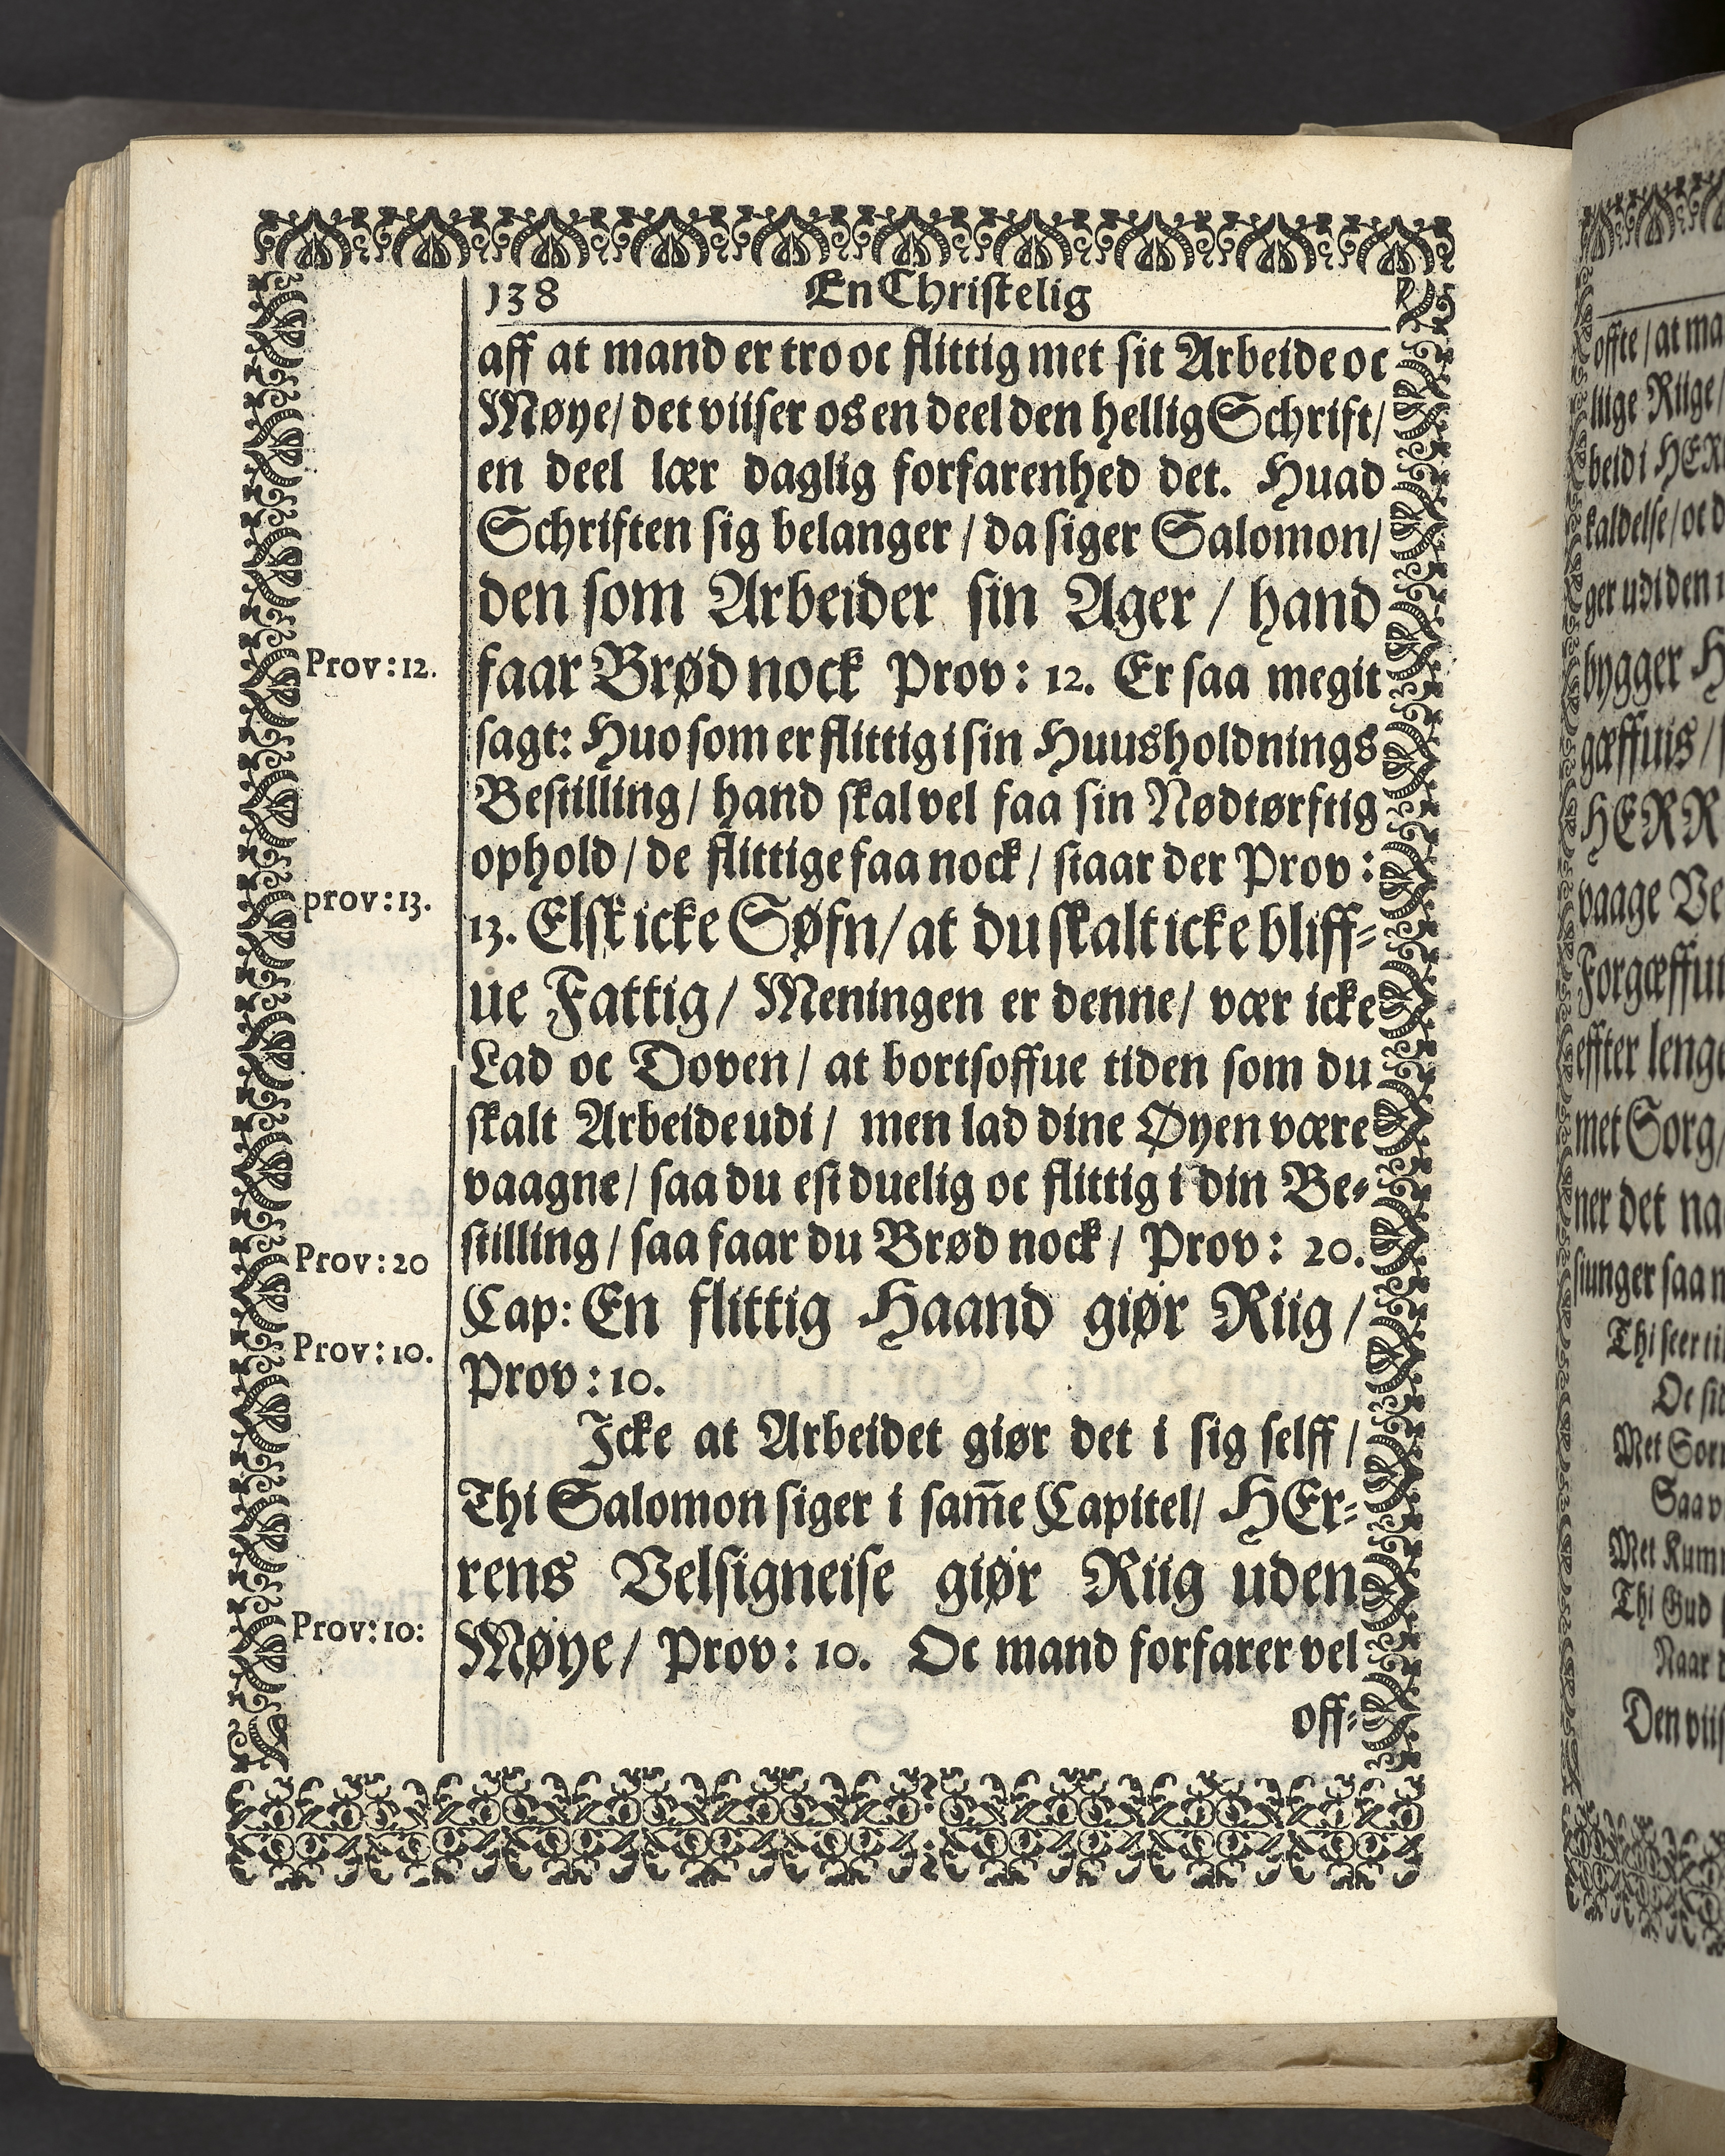 138 En Christelig
aff at mand er tro oc flittig met sit Arbeide oc
Møye/ det viiser os en deel den hellig Schrift/
en deel lær daglig forfarenhed det. Huad
Schriften sig belanger / da siger Salomon/
den som Arbeider sin Ager / hand
Prov:12.
faar Brød nock Prov: 12. Er saa megit
sagt: Huo som er flittig i sin Huusholdnings
Bestilling/ hand skal vel faa sin Nødtørftig
ophold/ de flittige faa nock/ staar der Prov:
prov:13.
13. Elsk icke Søfn/ at du skalt icke bliff-
ue Fattig/ Meningen er denne/ vær icke
Lad oc Doven/ at bortsoffue tiden som du
skalt Arbeide udi/ men lad dine Øyen være
vaagne/ saa du est duelig oc flittig i din Be-
stilling/ saa faar du Brød nock/ Prov: 20.
Prov:20
Cap: En flittig Haand giør Riig/
Prov:10.
Prov:10.
Icke at Arbeidet giør det i sig selff/
Thi Salomon siger i sam̄e Capitel/ HEr-
rens Velsigneise giør Riig uden
Prov:10:
Møye/ Prov: 10. Oc mand forfarer vel
off-
offte/ at ma
liige Riige/
beid i HER
kaldelse/ oc d
ger udi den
bygger H
gæffuis/
HERR
vaage Ve
Forgæffui
effter lenge
met Sorg/
ner det na
siunger saa
Thi seer ti
Oc
Met Sor
Saa
Met Kum
Thi Gud
Naar
Den viis